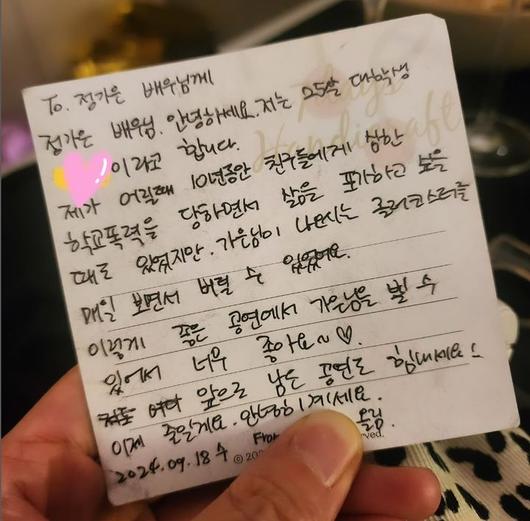 To. 정가은 배우님께
정가은 배우님. 안녕하세요. 저는 25살 대학생
이라고 합니다.
제가 어릴때 10년동안 친구들에게 심한
학교폭력을 당하면서 삶을 포기하고 싶을
때도 있었지만. 가은님이 나오시는 롤러코스터를
매일 보면서 버틸 수 있었어요.
이렇게 좋은 공연에서 가은님을 뵐 수
있어서 너무 좋아요~♡.
앞으로 남은 공연도 힘내세요
이제 줄일게요. 안녕히 계세요.
2024.09.18 수 From 올림.
Handicraft